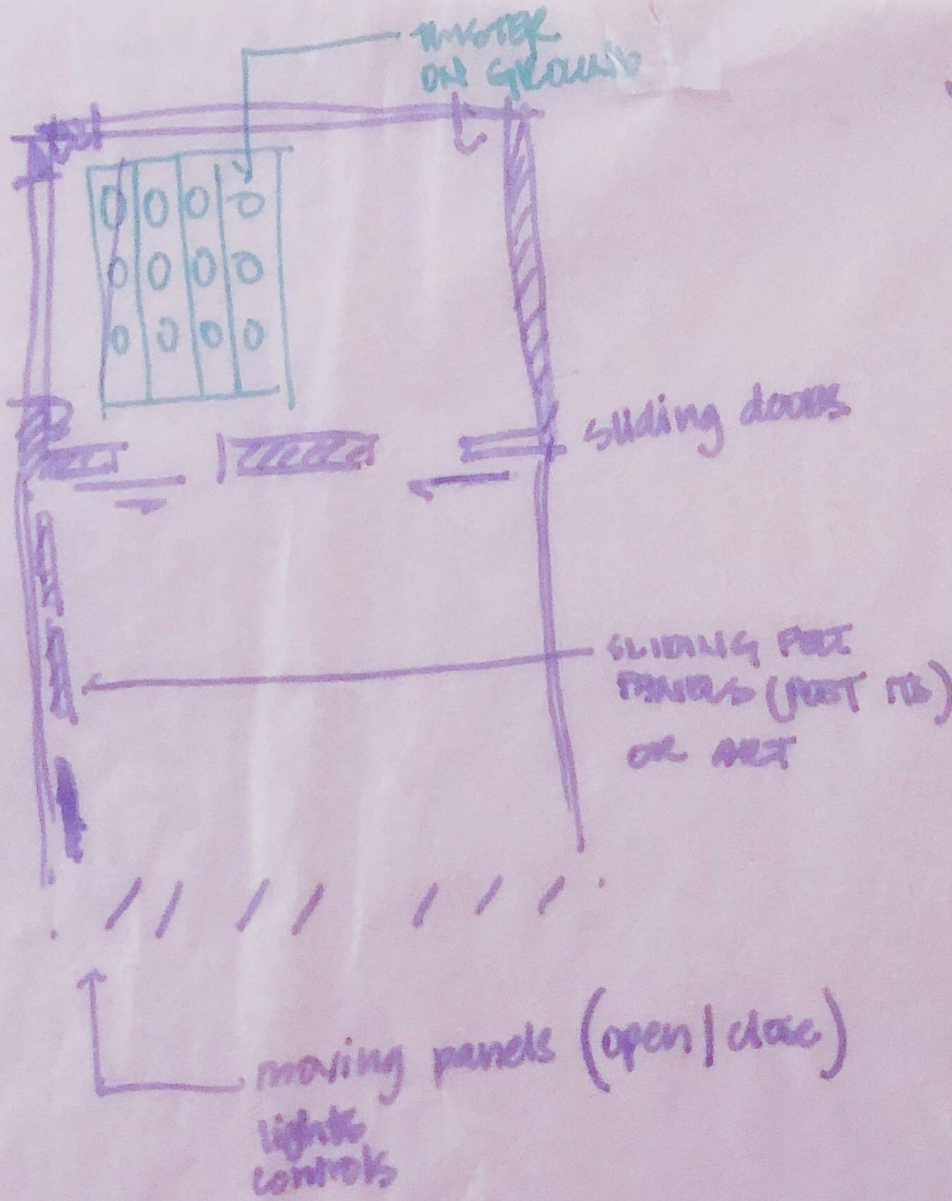 TWISTER
ON GROUND
sliding doors
SLIDING FELT
PANELS (POST ITS)
OR ART
moving panels (open | close)
lights
controls